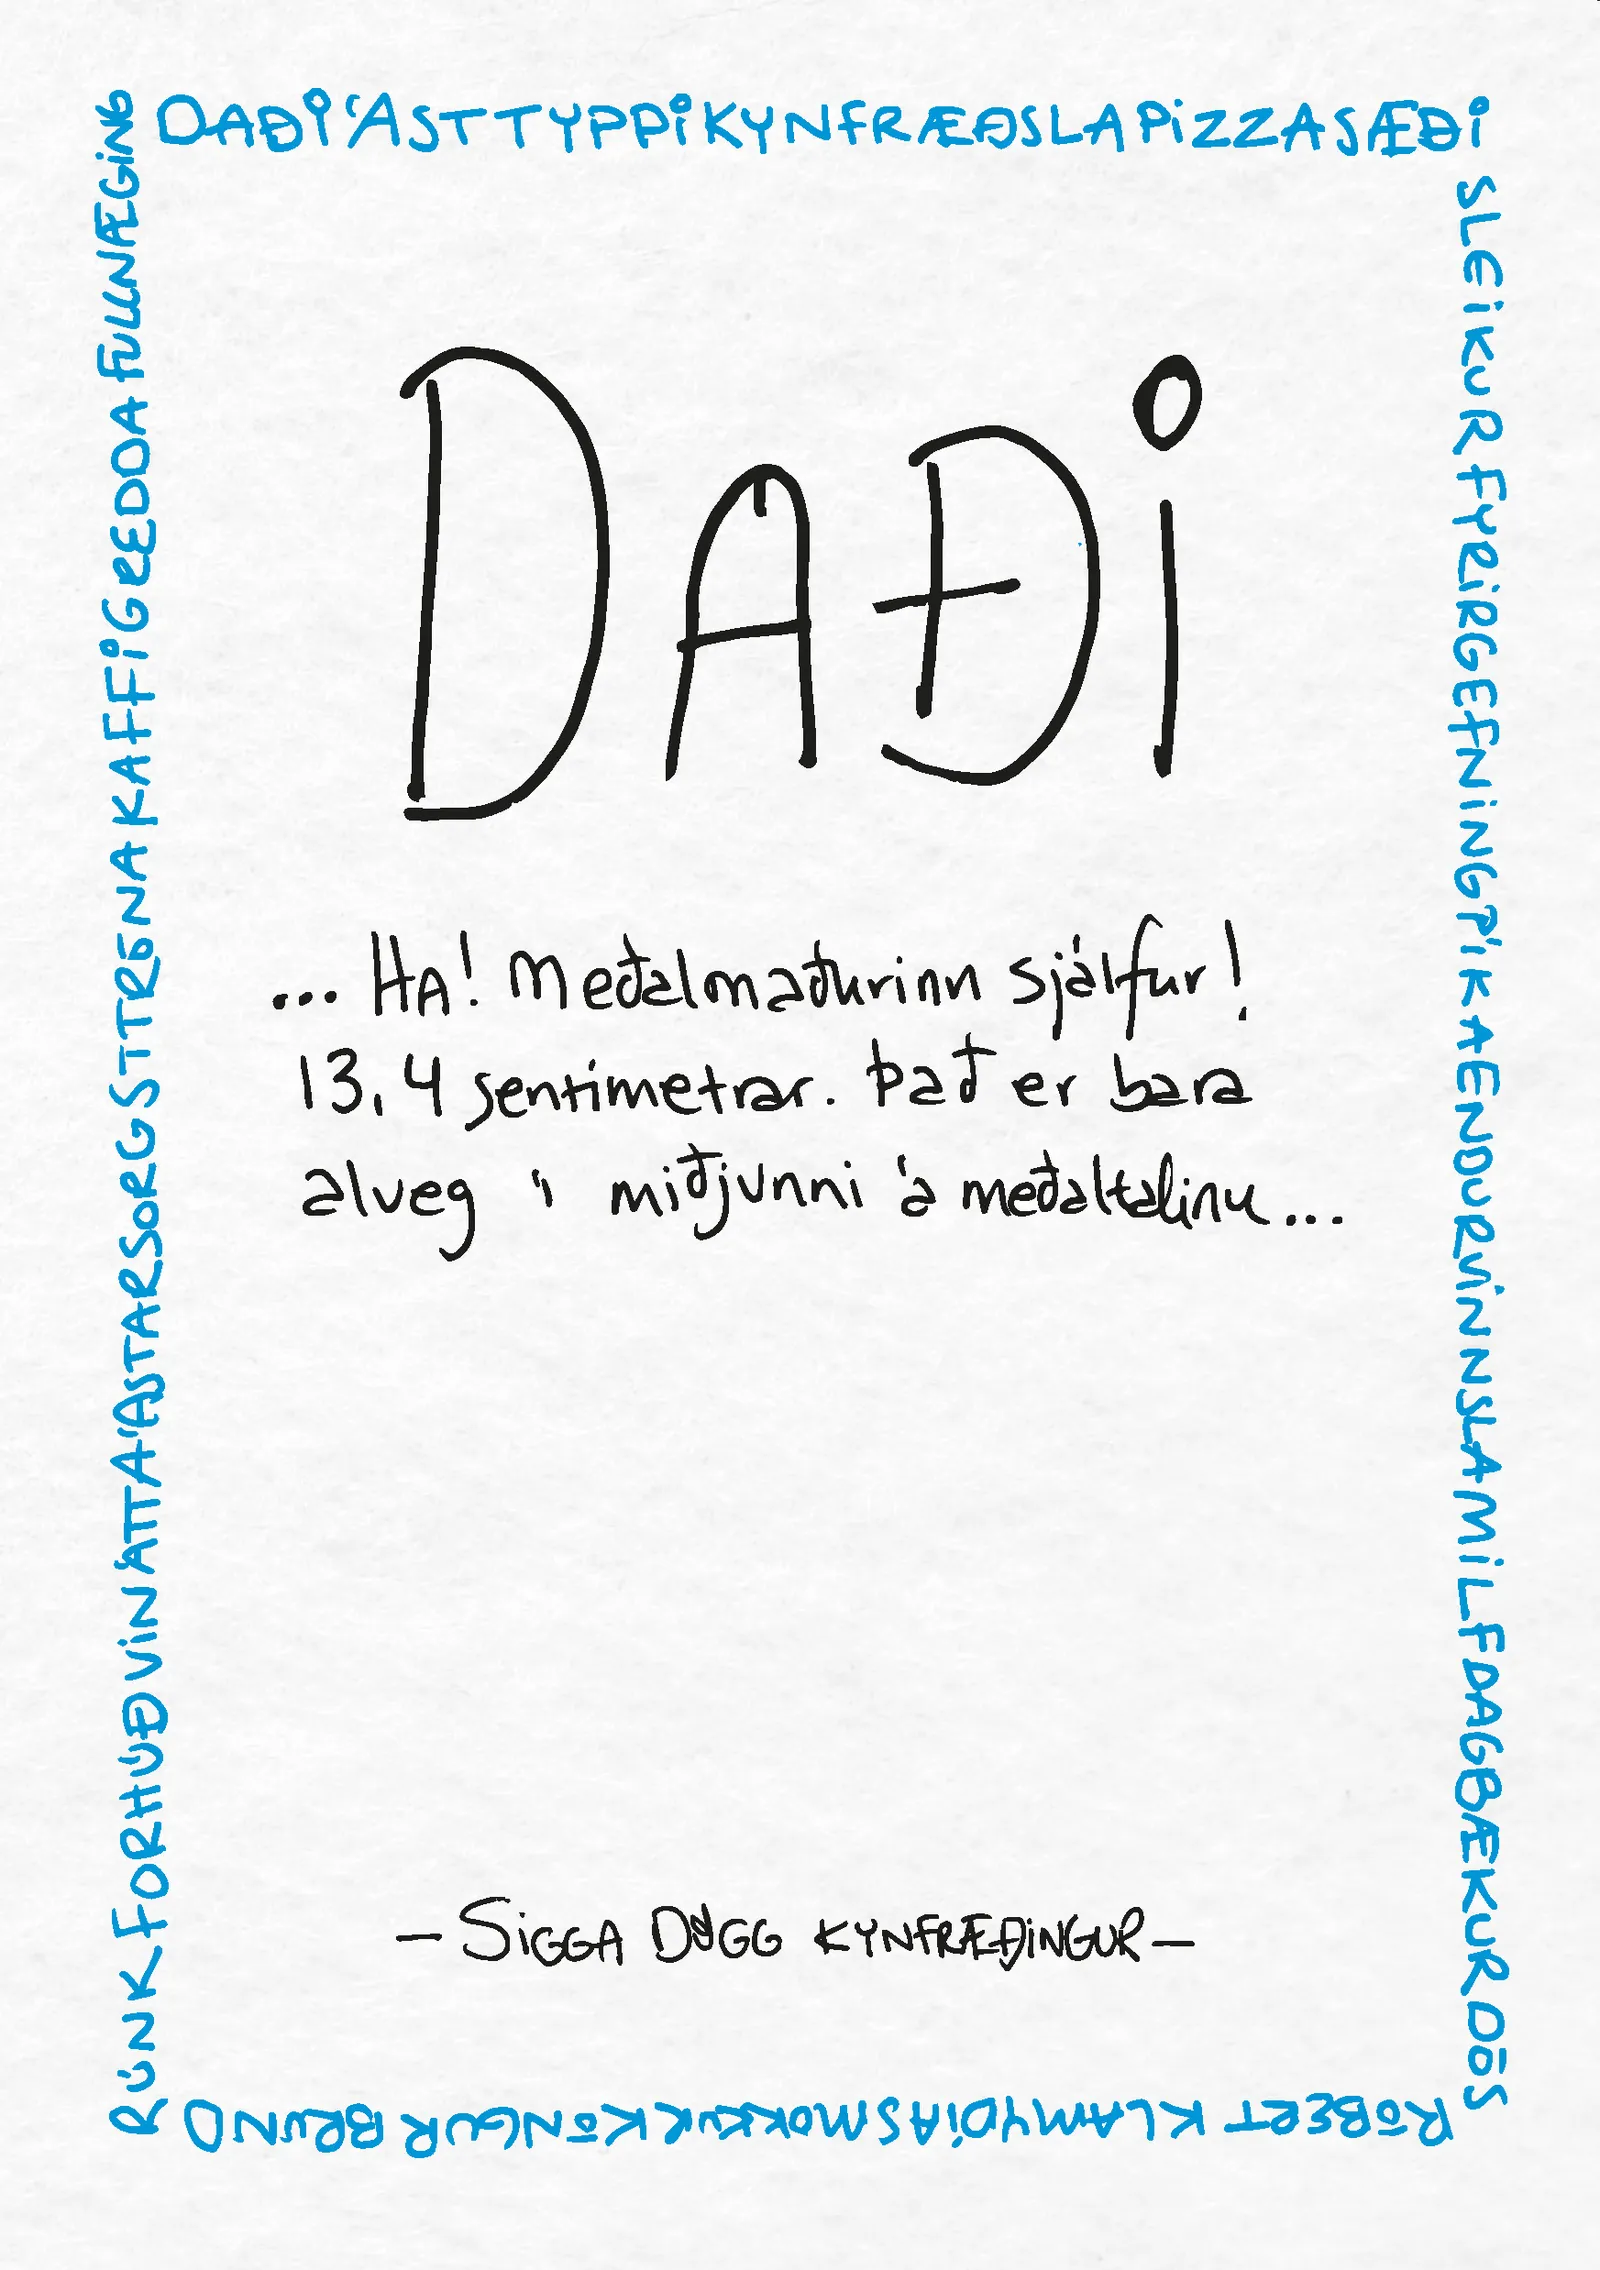 DAÐIÁSTTYPPIKYNFRÆÐSLAPIZZASÆÐI
SLEIKURFYRIRGEFNINGPÍKAENDURVINNSLAMILFDAGBÆKURDÓS
RÓBERTKLAMYDÍASMOKKURKÓNGURBRUND
RÚNKFORHÚÐVINÁTTAÁSTARSORGSTTRÉNAKAFFIGREDDAFULLNÆGING
DAÐI
... HA! Meðalmaðurinn sjálfur!
13,4 sentimetrar. Það er bara
alveg í miðjunni á meðaltalinu...
– SIGGA DÖGG KYNFRÆÐINGUR –